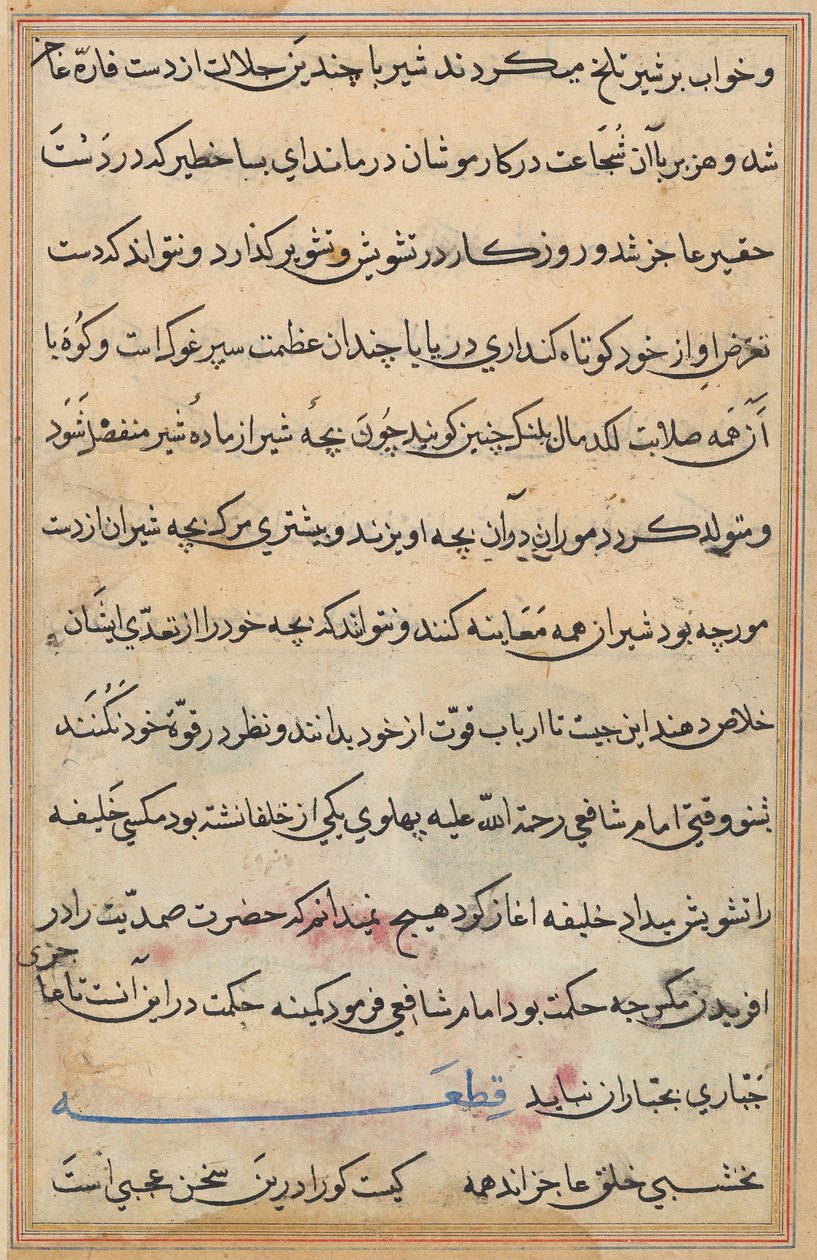 و خواب بر شیر تلخ میکردند شیر با چندین جلالت از دست فارهٔ عاجز
شد و هزبر باآن شُجَاعت در کار موشان درماند ای بسا خطیر که در دَسْت
حقیر عاجز شد و روزکار در تشویش و تشویر کذارد و نتواند که دست
تعرّض او از خود کوتاه کند اری دریا با چندان عظمت سپر غوک است و کوُه با
آن همَه صلابت لکدمال پلنک چنین کویند چُون بچهٔ شیر از مادهٔ شیر منفصل شَوَد
و متولد کردد موران دران بچه اویزند و بیشتری مرک بچه شیران از دست
مورچه بُود شیران همه مَعَاینه کنند و نتوانند که بچه خود را از تعدّی ایشَان
خلاص دهند این چیست تا ارباب قوّت از خود بدانند و نظر در قوّة خود نکُنَنَد
بشنو وقتی امام شافعی رحمة اللّه علیه پهلوی یکی از خلفا نشته بود مکسی خَلیفه
را تشویش میداد خلیفه اغاز کرد هیچ نمیدانم که حضرت صمدیّت را در
افریدن مکس چه حکمت بود امام شافعی فرمود کمینه حکمت در این آنست تا عاجزی
جَبّاری بجبّاران نماید قِطعَه
نخشبی خلق عاجزاند همه کیست کورا درین سخن عجبی است